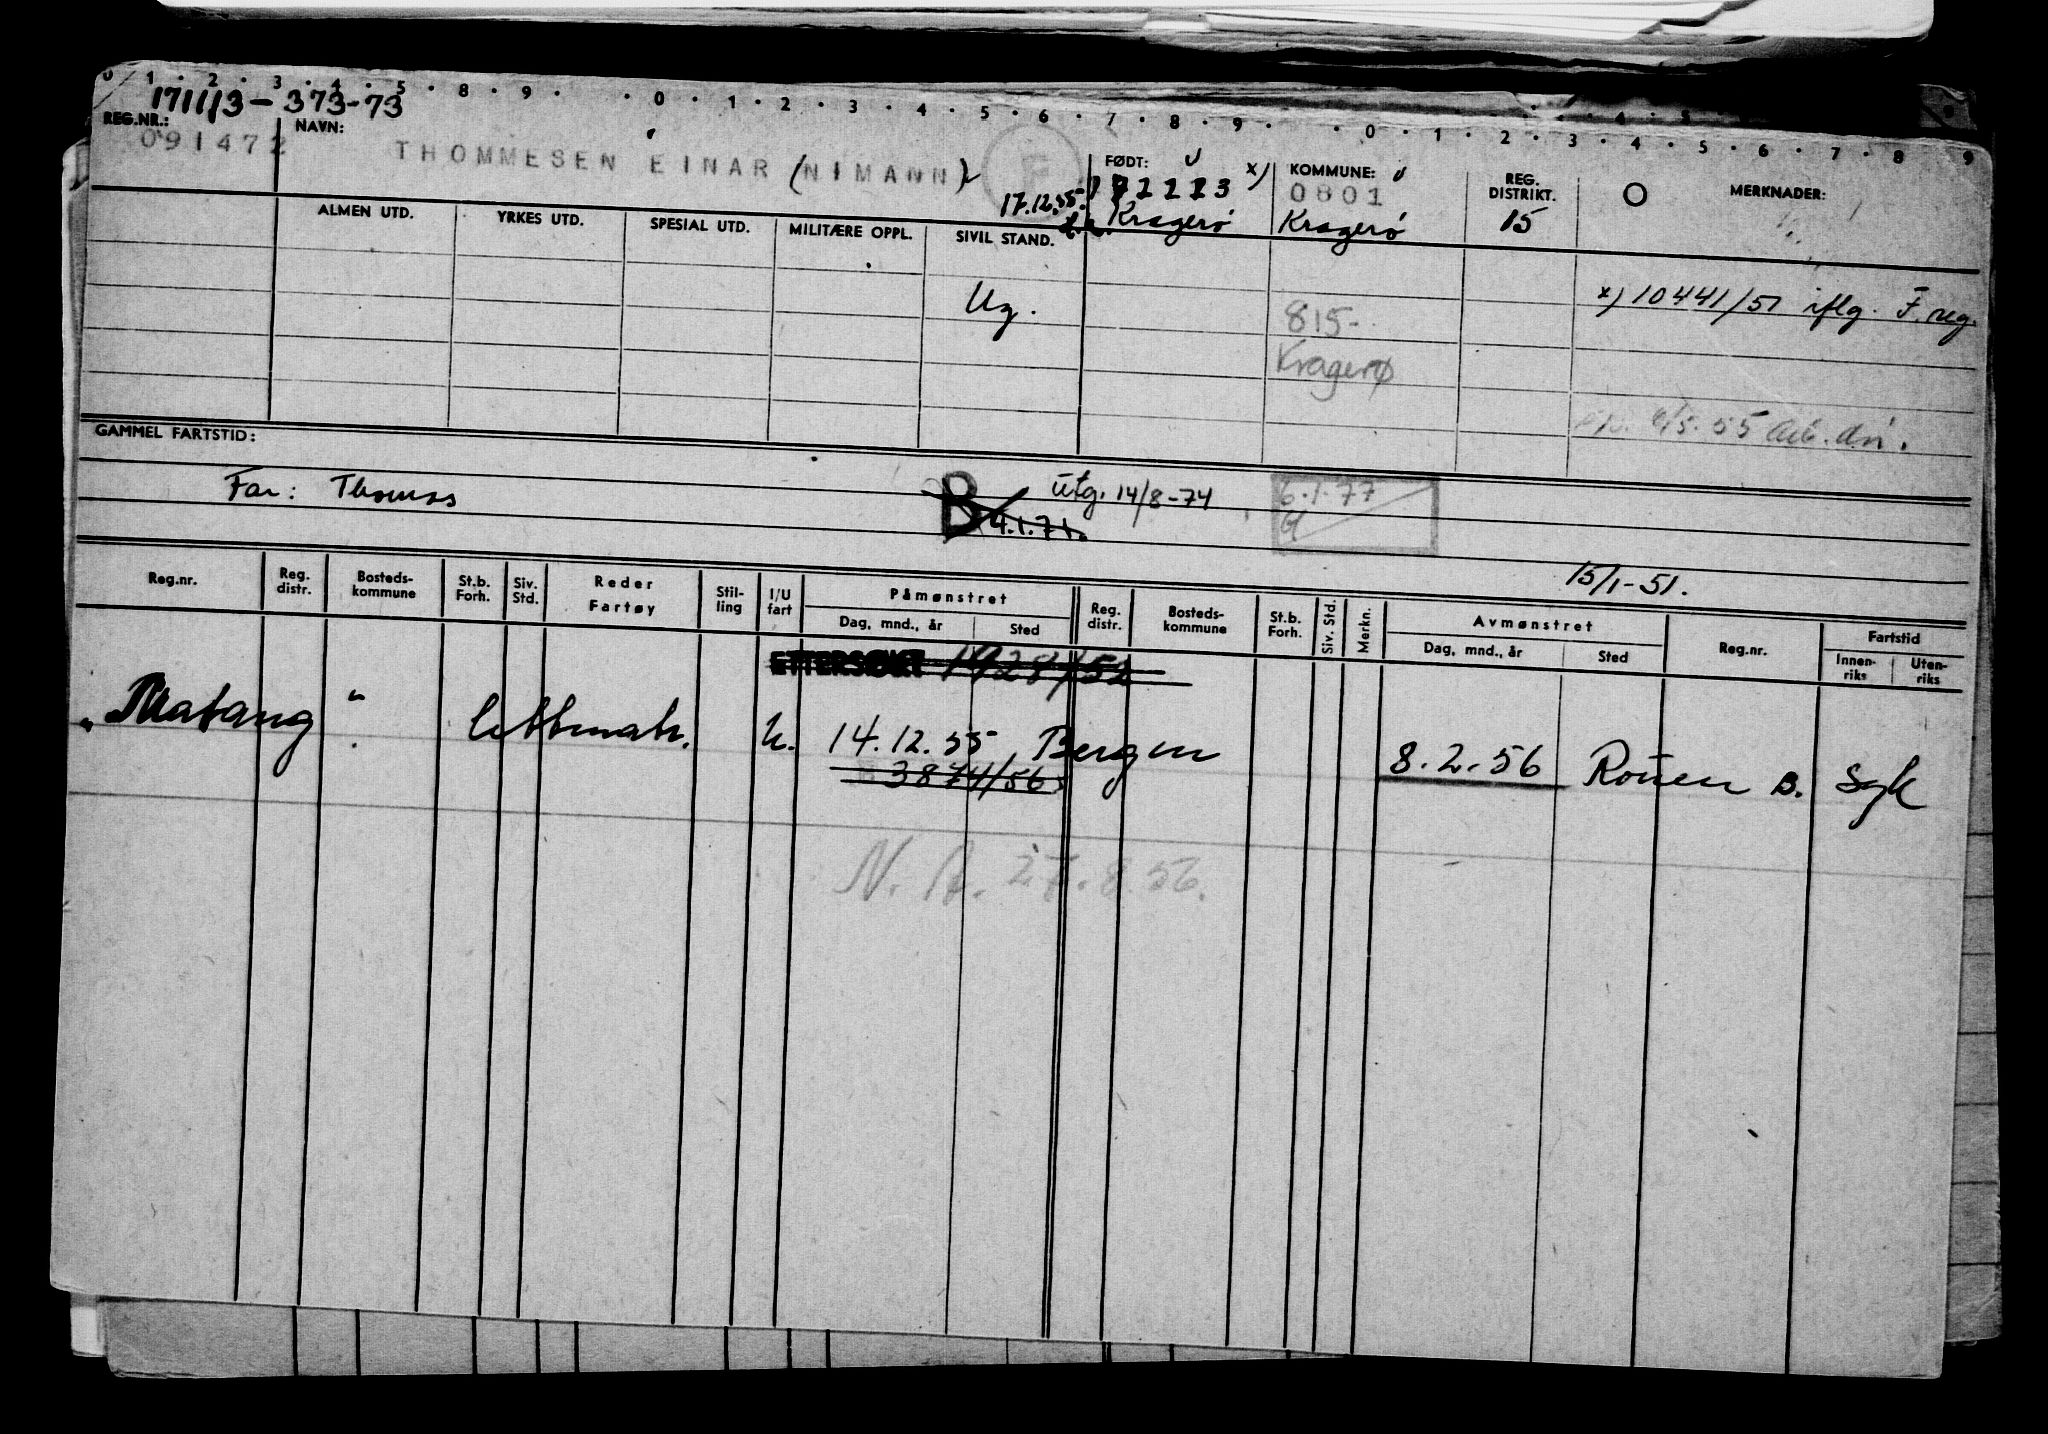 0 1 . 2 . 3 . 4 . 5 . 8 . 9 . . 0 . 1 . 2 . 3 . 4 . 5 . 6 . 7 . 8 . 9 . . 0 . 1 . 2 . 3 . 4 . 5 . 6 . 7 . 8 9
171113-373-73
REG.NR.: NAVN: FØDT: KOMMUNE: REG. DISTRIKT. MERKNADER:
091472 THOMMESEN EINAR (NIMANN) F x) 0801
17.12.35. Kragerø Kragerø 15
ALMEN UTD. YRKES UTD. SPESIAL UTD. MILITÆRE OPPL. SIVIL STAND.
Ug. 815- x) 10441/51 iflg. F.reg.
Kragerø
GAMMEL FARTSTID:
Far: Thomas B 4.1.71. Utg. 14/8-74 6.1.77
15/1-51.
Reg.nr. Reg. distr. Bosteds-kommune St.b. Forh. Siv. Std. Reder Fartøy Stil-ling I/U fart Påmønstret Dag, mnd., år Sted Reg. distr. Bosteds-kommune St.b. Forh. Siv. Std. Merkn. Avmønstret Dag, mnd., år Sted Reg.nr. Fartstid Innen-riks Uten-riks
ETTERSØKT 1928/52
"Matang" lettmatr. U. 14.12.55 Bergen 8.2.56 Rouen B. Syk
3874/56
N. A. 27.8.56.